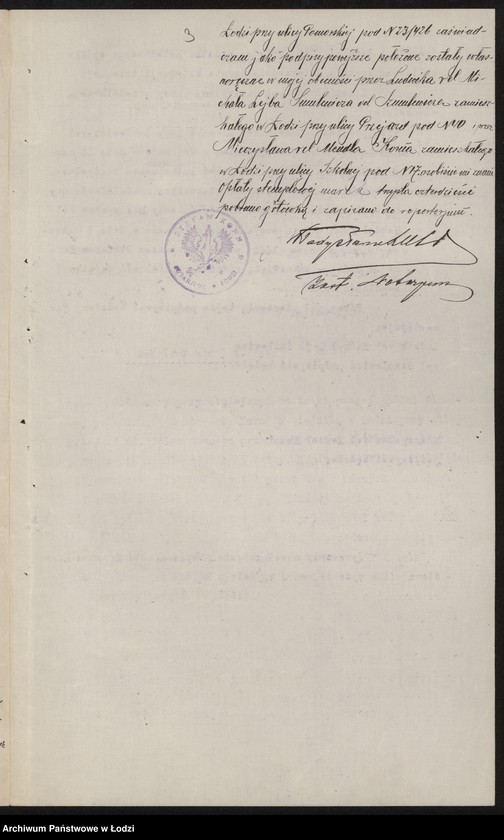 3
Łodzi przy ulicy Pomorskiej pod N 73/426 zaświad-
czam, jako podpisy powyższe położone zostały włas-
noręcznie w mojej obecności przez Ludwika vel Mi-
chała Lejba Szmulewicza vel Szmulewicza zamiesz-
kałego w Łodzi przy ulicy Przejazd pod N 40 i przez
Mieczysława vel Mendla Kona zamieszkałego
w Łodzi przy ulicy Szkolnej pod N 17 osobiście mi znani
Opłaty stemplowej marek trzysta czterdzieści
pobrano gotówką i zapisano do repertorjum.
Zast. Notarjusza
Archiwum Państwowe w Łodzi